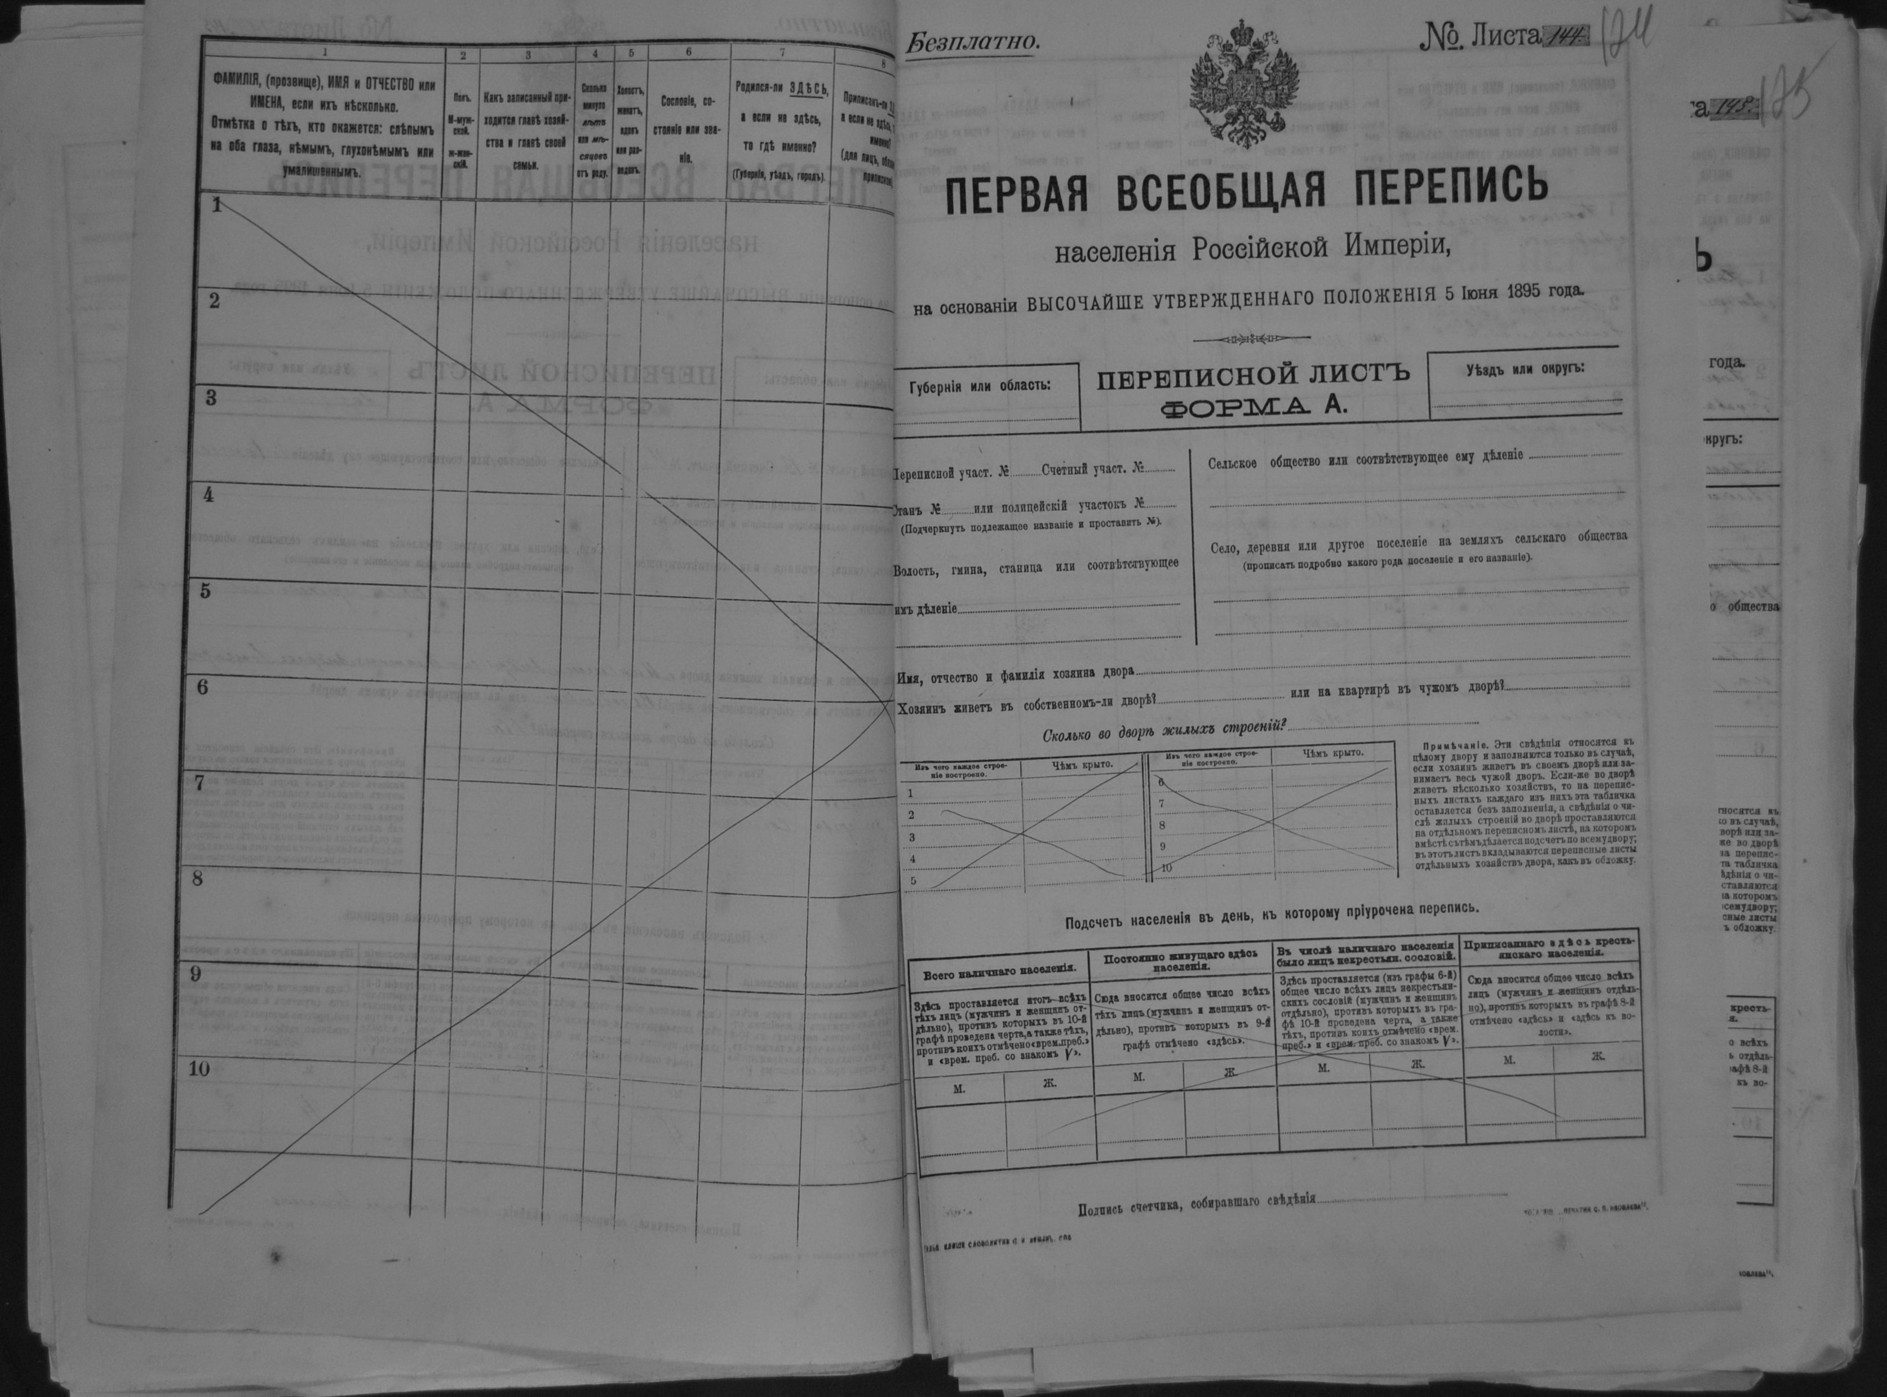 1 2 3 4 5 6 7 8
ФАМИЛІЯ, (прозвище), ИМЯ и ОТЧЕСТВО или
ИМЕНА, если ихъ нѣсколько.
Отмѣтка о тѣхъ, кто окажется: слѣпымъ
на оба глаза, нѣмымъ, глухонѣмымъ или
умалишеннымъ.
Полъ.
М-муж-
ской.
ж-жен-
скій.
Какъ записанный при-
ходится главѣ хозяй-
ства и главѣ своей
семьи.
Сколько
минуло
лѣтъ
или мѣ-
сяцевъ
отъ роду.
Холостъ,
женатъ,
вдовъ
или раз-
веденъ.
Сословіе, со-
стояніе или зва-
ніе.
Родился-ли ЗДѢСЬ,
а если не здѣсь,
то гдѣ именно?
(Губернія, уѣздъ, городъ).
Приписанъ-ли
а если не здѣсь,
(для лицъ,
1
2
3
4
5
6
7
8
9
10
Безплатно.
№. Листа 144. 124
ПЕРВАЯ ВСЕОБЩАЯ ПЕРЕПИСЬ
населенія Россійской Имперіи,
на основаніи ВЫСОЧАЙШЕ УТВЕРЖДЕННАГО ПОЛОЖЕНІЯ 5 Іюня 1895 года.
Губернія или область:
ПЕРЕПИСНОЙ ЛИСТЪ
ФОРМА А.
Уѣздъ или округъ:
Переписной участ. № Счетный участ. №
Станъ № или полицейскій участокъ №
(Подчеркнуть подлежащее названіе и проставить №).
Волость, гмина, станица или соотвѣтствующее
имъ дѣленіе
Сельское общество или соотвѣтствующее ему дѣленіе
Село, деревня или другое поселеніе на земляхъ сельскаго общества
(прописать подробно какого рода поселеніе и его названіе).
Имя, отчество и фамилія хозяина двора
Хозяинъ живетъ въ собственномъ-ли дворѣ? или на квартирѣ въ чужомъ дворѣ?
Сколько во дворѣ жилыхъ строеній?
Изъ чего каждое строе-
ніе построено.
Чѣмъ крыто.
Изъ чего каждое строе-
ніе построено.
Чѣмъ крыто.
1
2
3
4
5
6
7
8
9
10
Примѣчаніе. Эти свѣдѣнія относятся къ
цѣлому двору и заполняются только въ случаѣ,
если хозяинъ живетъ въ своемъ дворѣ или за-
нимаетъ весь чужой дворъ. Если-же во дворѣ
живетъ нѣсколько хозяйствъ, то на перепис-
ныхъ листахъ каждаго изъ нихъ эта табличка
оставляется безъ заполненія, а свѣдѣнія о чи-
слѣ жилыхъ строеній во дворѣ проставляются
на отдѣльномъ переписномъ листѣ, на которомъ
вмѣстѣ съ тѣмъ дѣлается подсчетъ по всему двору;
въ этотъ листъ вкладываются переписные листы
отдѣльныхъ хозяйствъ двора, какъ въ обложку.
Подсчетъ населенія въ день, къ которому пріурочена перепись.
Всего наличнаго населенія.
Здѣсь проставляется итогъ всѣхъ
тѣхъ лицъ (мужчинъ и женщинъ от-
дѣльно), противъ которыхъ въ 10-й
графѣ проведена черта, а также тѣхъ,
противъ коихъ отмѣчено «врем. преб.»
и «врем. преб. со знакомъ V».
М. Ж.
Постоянно живущаго здѣсь
населенія.
Сюда вносится общее число всѣхъ
тѣхъ лицъ (мужчинъ и женщинъ от-
дѣльно), противъ которыхъ въ 9-й
графѣ отмѣчено «здѣсь».
М. Ж.
Въ числѣ наличнаго населенія
было лицъ некрестьян. сословій.
Здѣсь проставляется (изъ графы 6-й)
общее число всѣхъ лицъ некрестьян-
скихъ сословій (мужчинъ и женщинъ
отдѣльно), противъ которыхъ въ гра-
фѣ 10-й проведена черта, а также
тѣхъ, противъ коихъ отмѣчено «врем.
преб.» и «врем. преб. со знакомъ V».
М. Ж.
Приписаннаго здѣсь кресть-
янскаго населенія.
Сюда вносится общее число всѣхъ
лицъ (мужчинъ и женщинъ отдѣль-
но), противъ которыхъ въ графѣ 8-й
отмѣчено «здѣсь» и «здѣсь къ во-
лости».
М. Ж.
Подпись счетчика, собиравшаго свѣдѣнія
та 148. 125
Ь
года.
округъ:
о общества